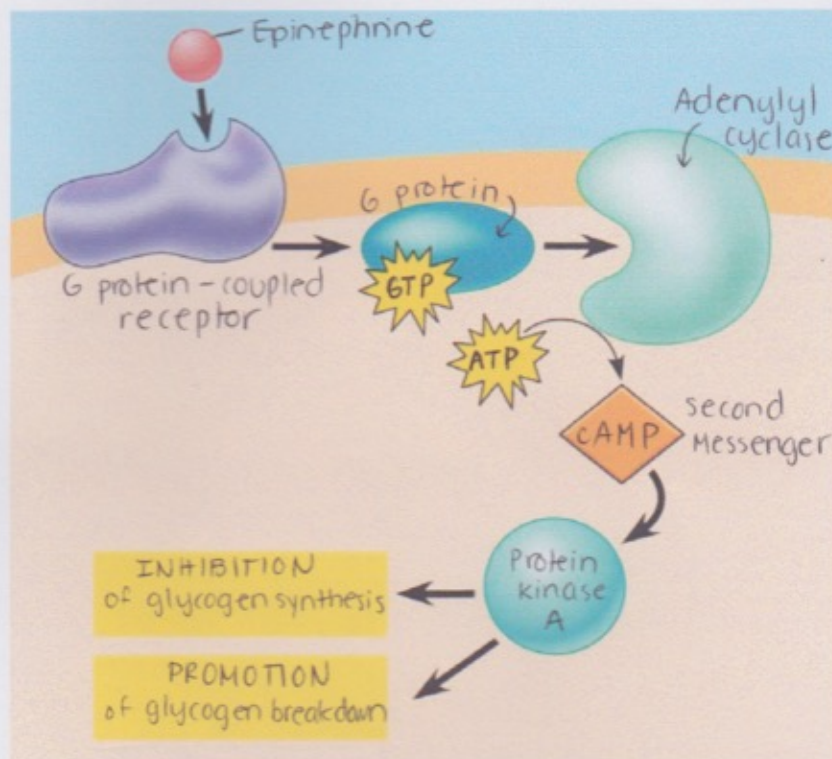 Epinephrine
Adenylyl
cyclase
G protein
G protein-coupled
receptor
GTP
ATP
cAMP
second
Messenger
Protein
kinase
A
INHIBITION
of glycogen synthesis
PROMOTION
of glycogen breakdown